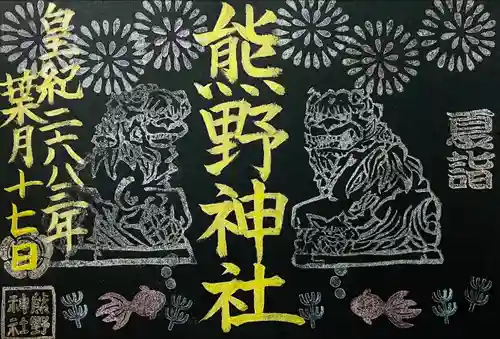 夏詣
熊野神社
皇紀二六八三年
葉月十七日
熊野
神社